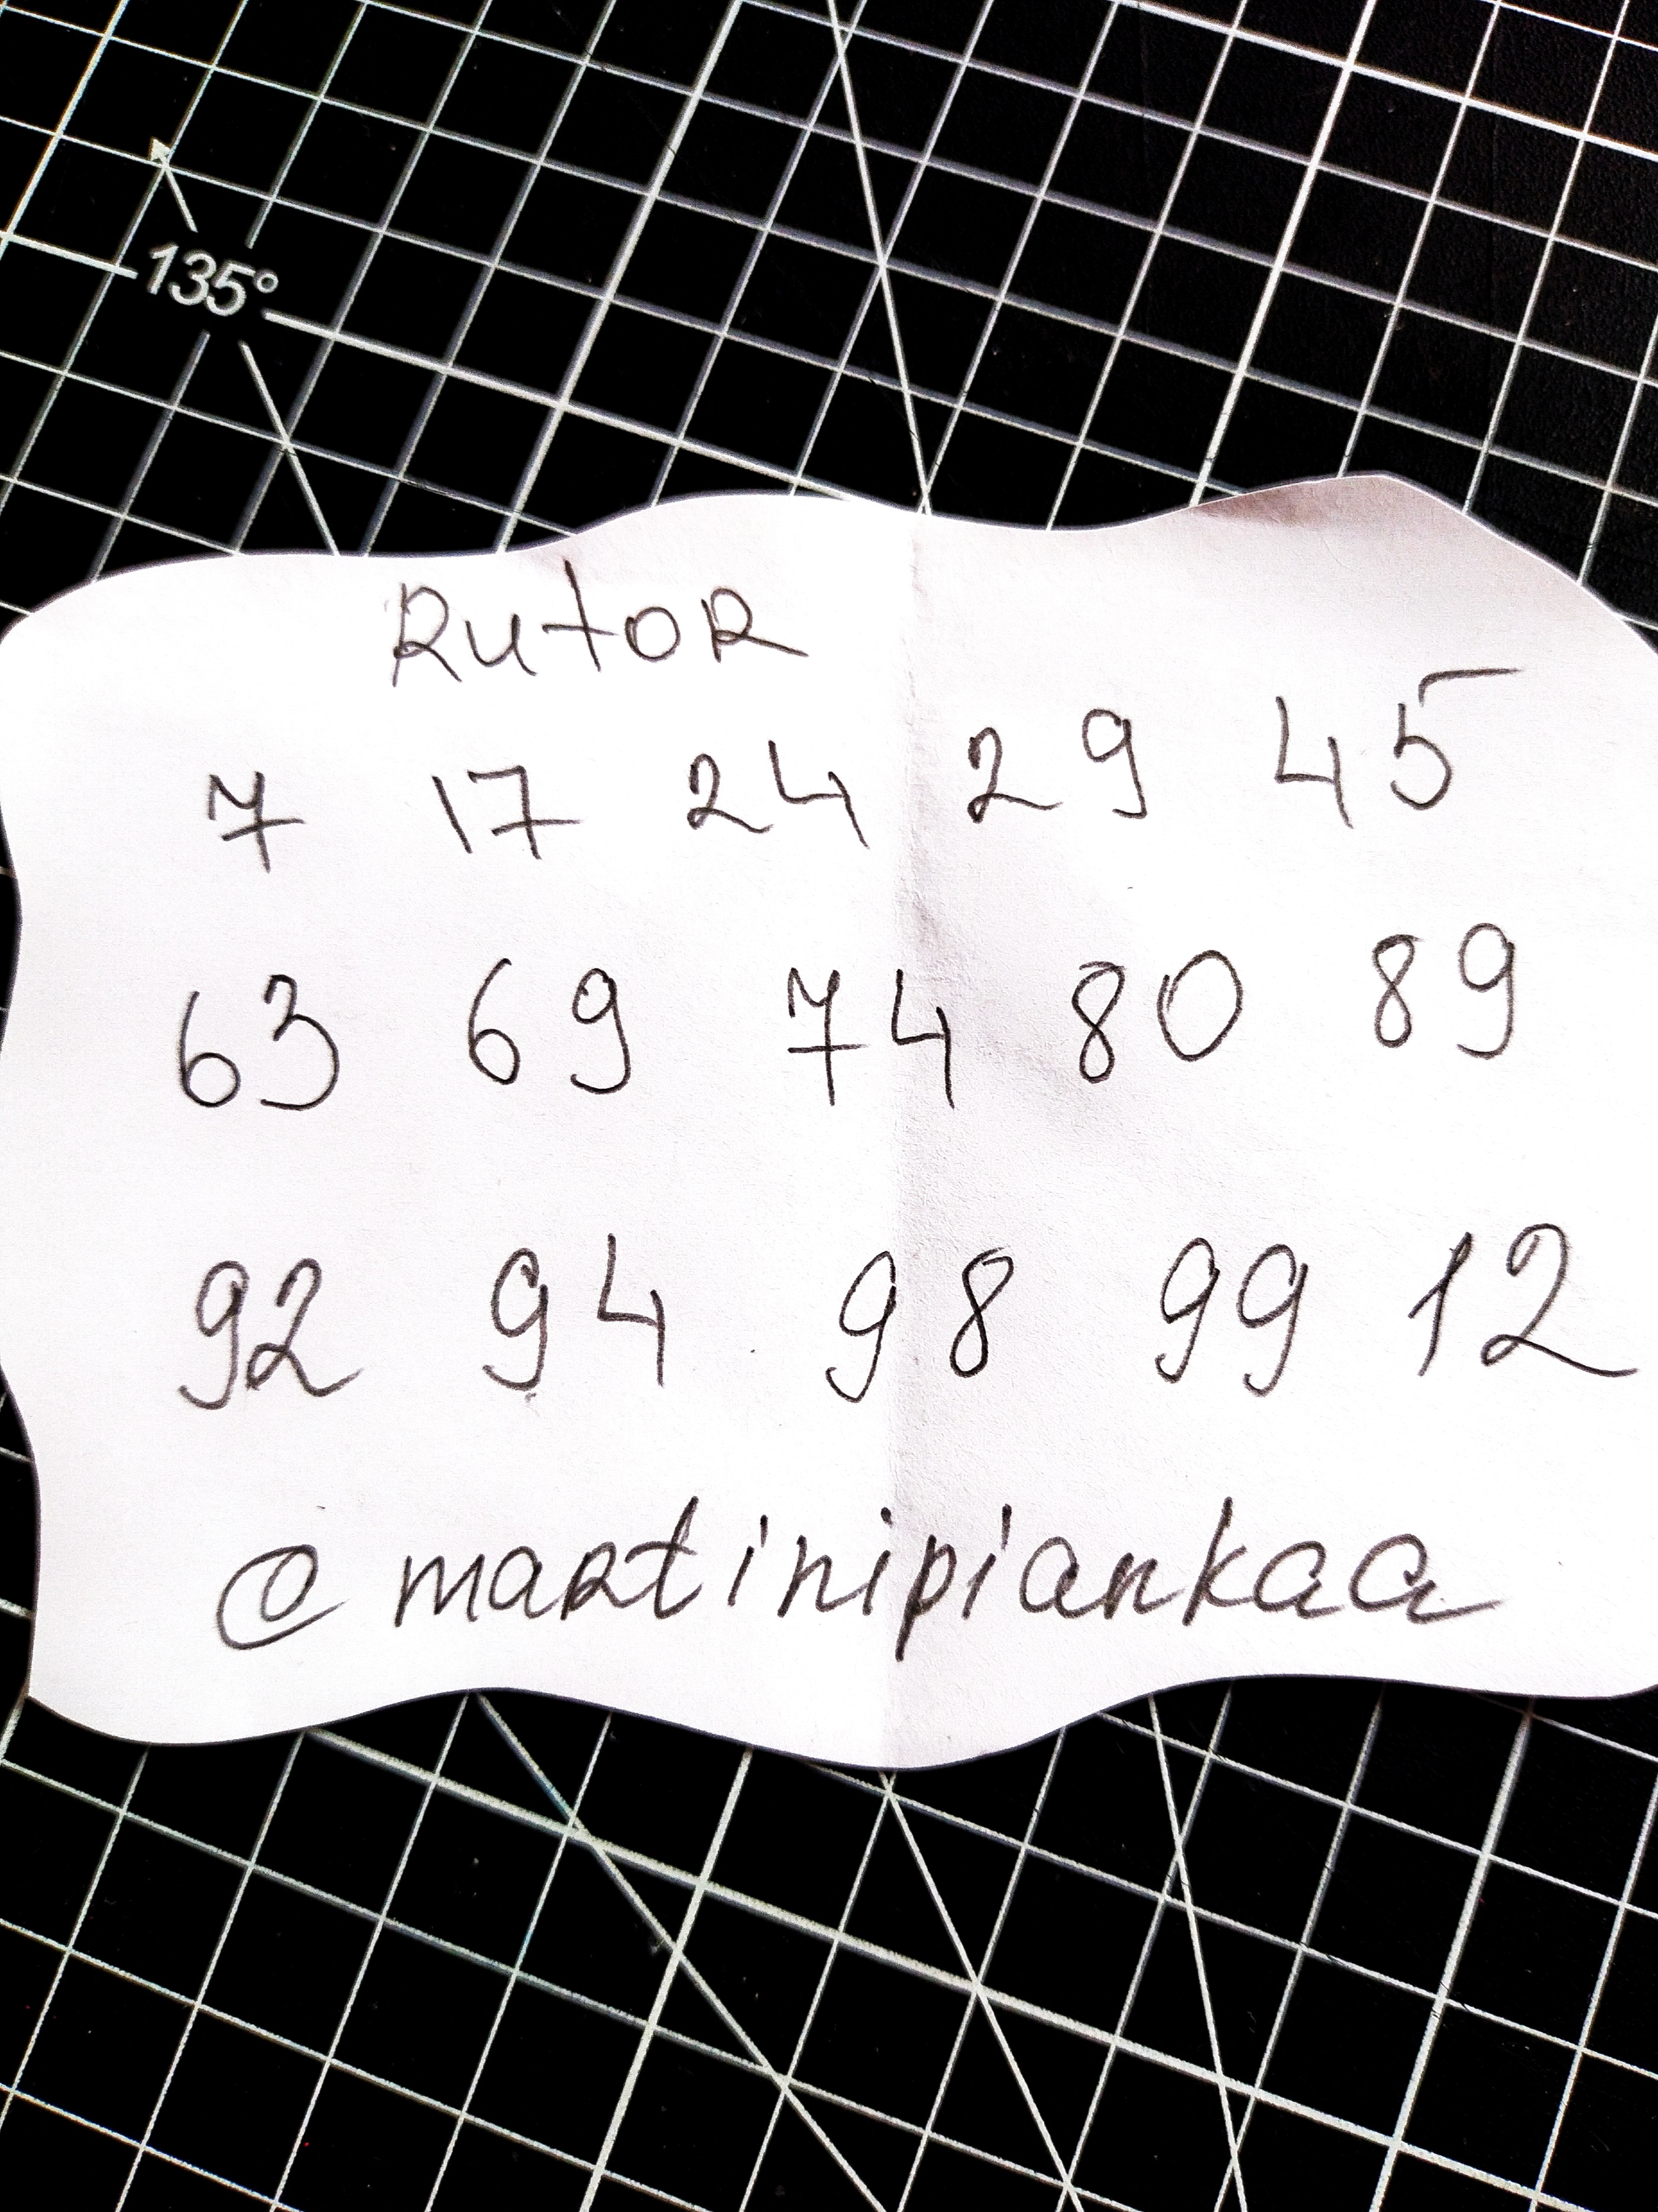 135°
RutoR
7 17 24 29 45
63 69 74 80 89
92 94 98 99 12
@martinipiankaa